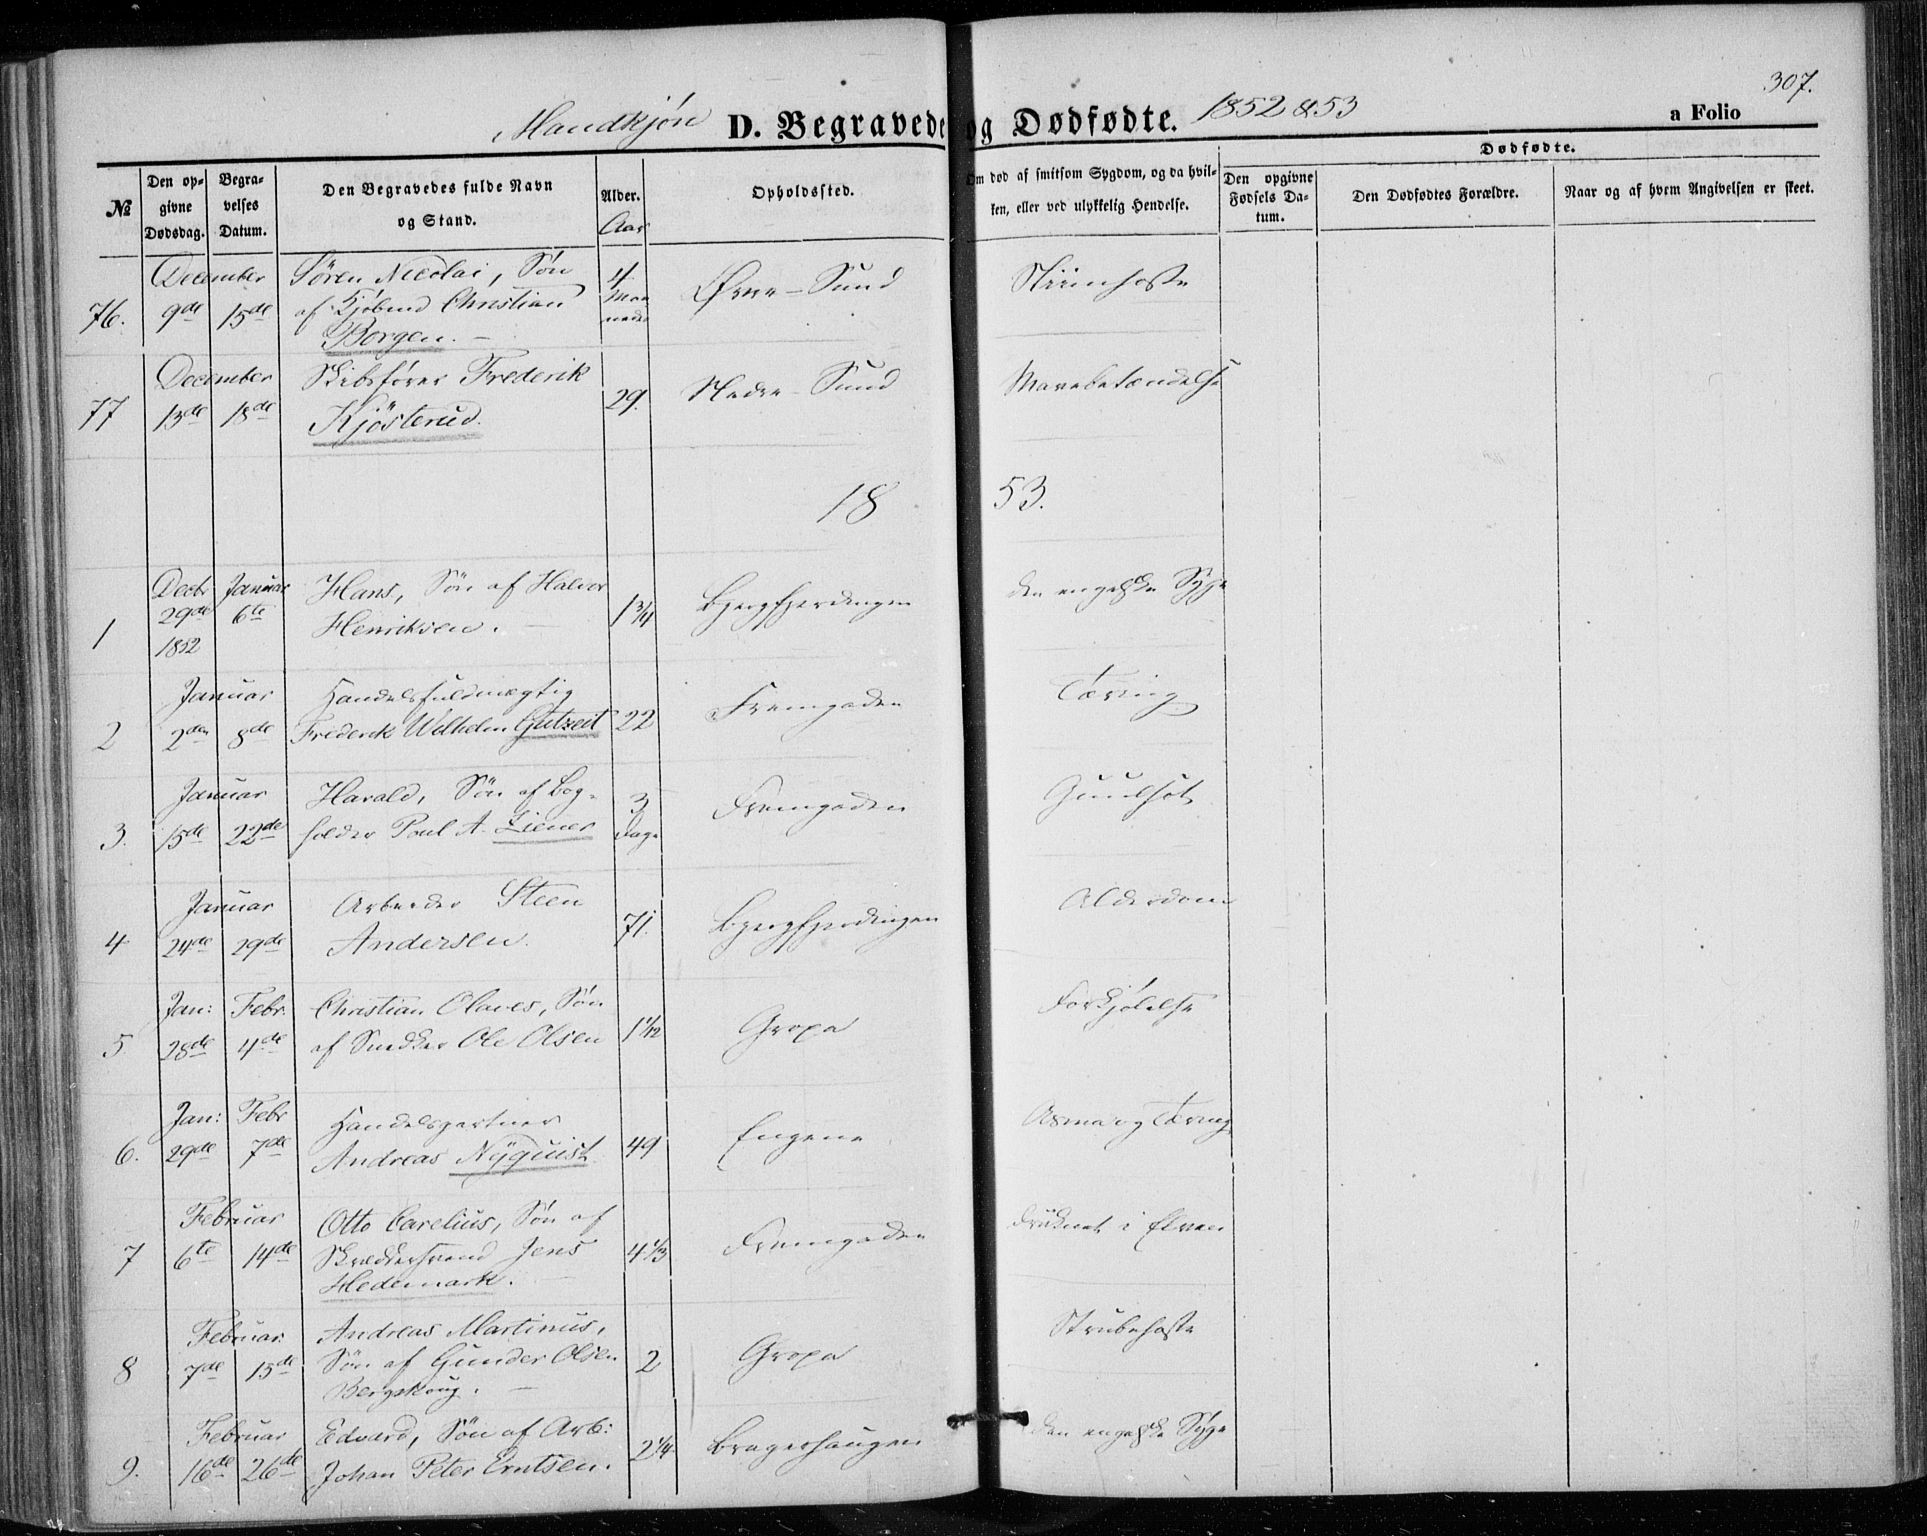 Mandkjøn D. Begravede og Dødfødte. 1852 & 53 a Folio 307.
№ Den opgivne Dødsdag. Begravelses Datum. Den Begravedes fulde Navn og Stand. Alder. Aar Opholdssted. Om død af smitsom Sygdom, og da hvilken, eller ved ulykkelig Hendelse. Dødfødte. Den opgivne Fødsels Datum. Den Dødfødtes Forældre. Naar og af hvem Angivelsen er skeet.
December Søren Nicolai, Søn 4 Øvre-Sund
76. 9de 15de af Kjøbmd Christian Maaneder
Borgen. —
December Skibsfører Frederik Nedre-Sund Mavebetændelse
77 13de 18de Kjösterud. 29.
18 53.
Decbr Januar Hans, Søn af Halvor Bjergfjerdingen den engelske Syge
1 29de 6te Henriksen. — 1 3/4
1852
Januar Handelsfuldmægtig Fremgaden Tæring
2 2den 8de Frederik Wilhelm Gutzeit 22
Januar Harald, Søn af Bog- 3 Fremgaden Guulsot
3. 15de 22de holder Poul A. Ziener Dage
Januar Arbeider Steen Bjergfjerdingen Alderdom
4 24de 29de Andersen. 71.
Jan: Febr. Christian Olaves, Søn Gropa Forkjølelse
5 28de 4de af Snedker Ole Olsen 1 1/12
Jan: Febr Handelsgartner Engene Asma og Tæring
6. 29de 7de Andreas Nÿquist 49
Februar Otto Carelius, Søn af Fremgaden Druknet i Elven
7 6te 14de Skræddersvend Jens 4 1/3
Hedemark. —
Februar Andreas Martinus, Gropa Strubehoste
8 7de 15de Søn af Gunder Olsen 2
Bergskoug. —
Februar Edvard, Søn af Arb: Bragerhaugen den engelske Syge
9. 16de 26de Johan Peter Erntsen. 2 1/4